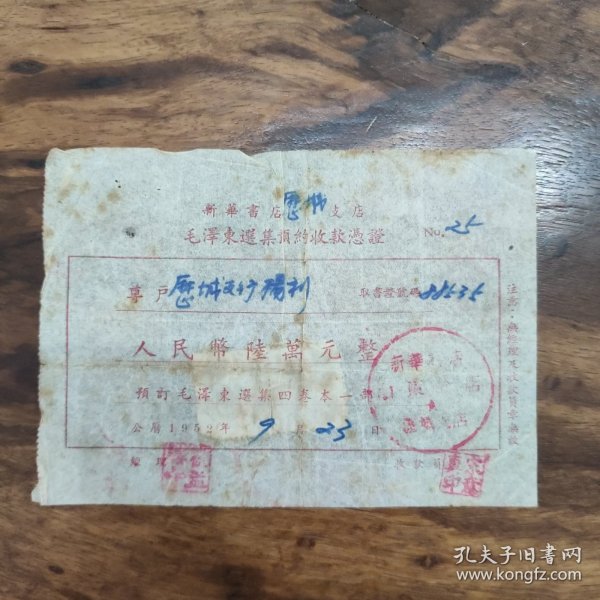 新華書店歷城支店
毛澤東選集預約收款憑證
No. 25
專戶 歷城支行 楊利
取書證號碼 08535
人民幣陸萬元整
預訂毛澤東選集四卷本一部
公曆1952年9月23日
經理
收款員
注意:無經理及收款員章無效
新華書店
孔夫子旧书网
www.kongfz.com